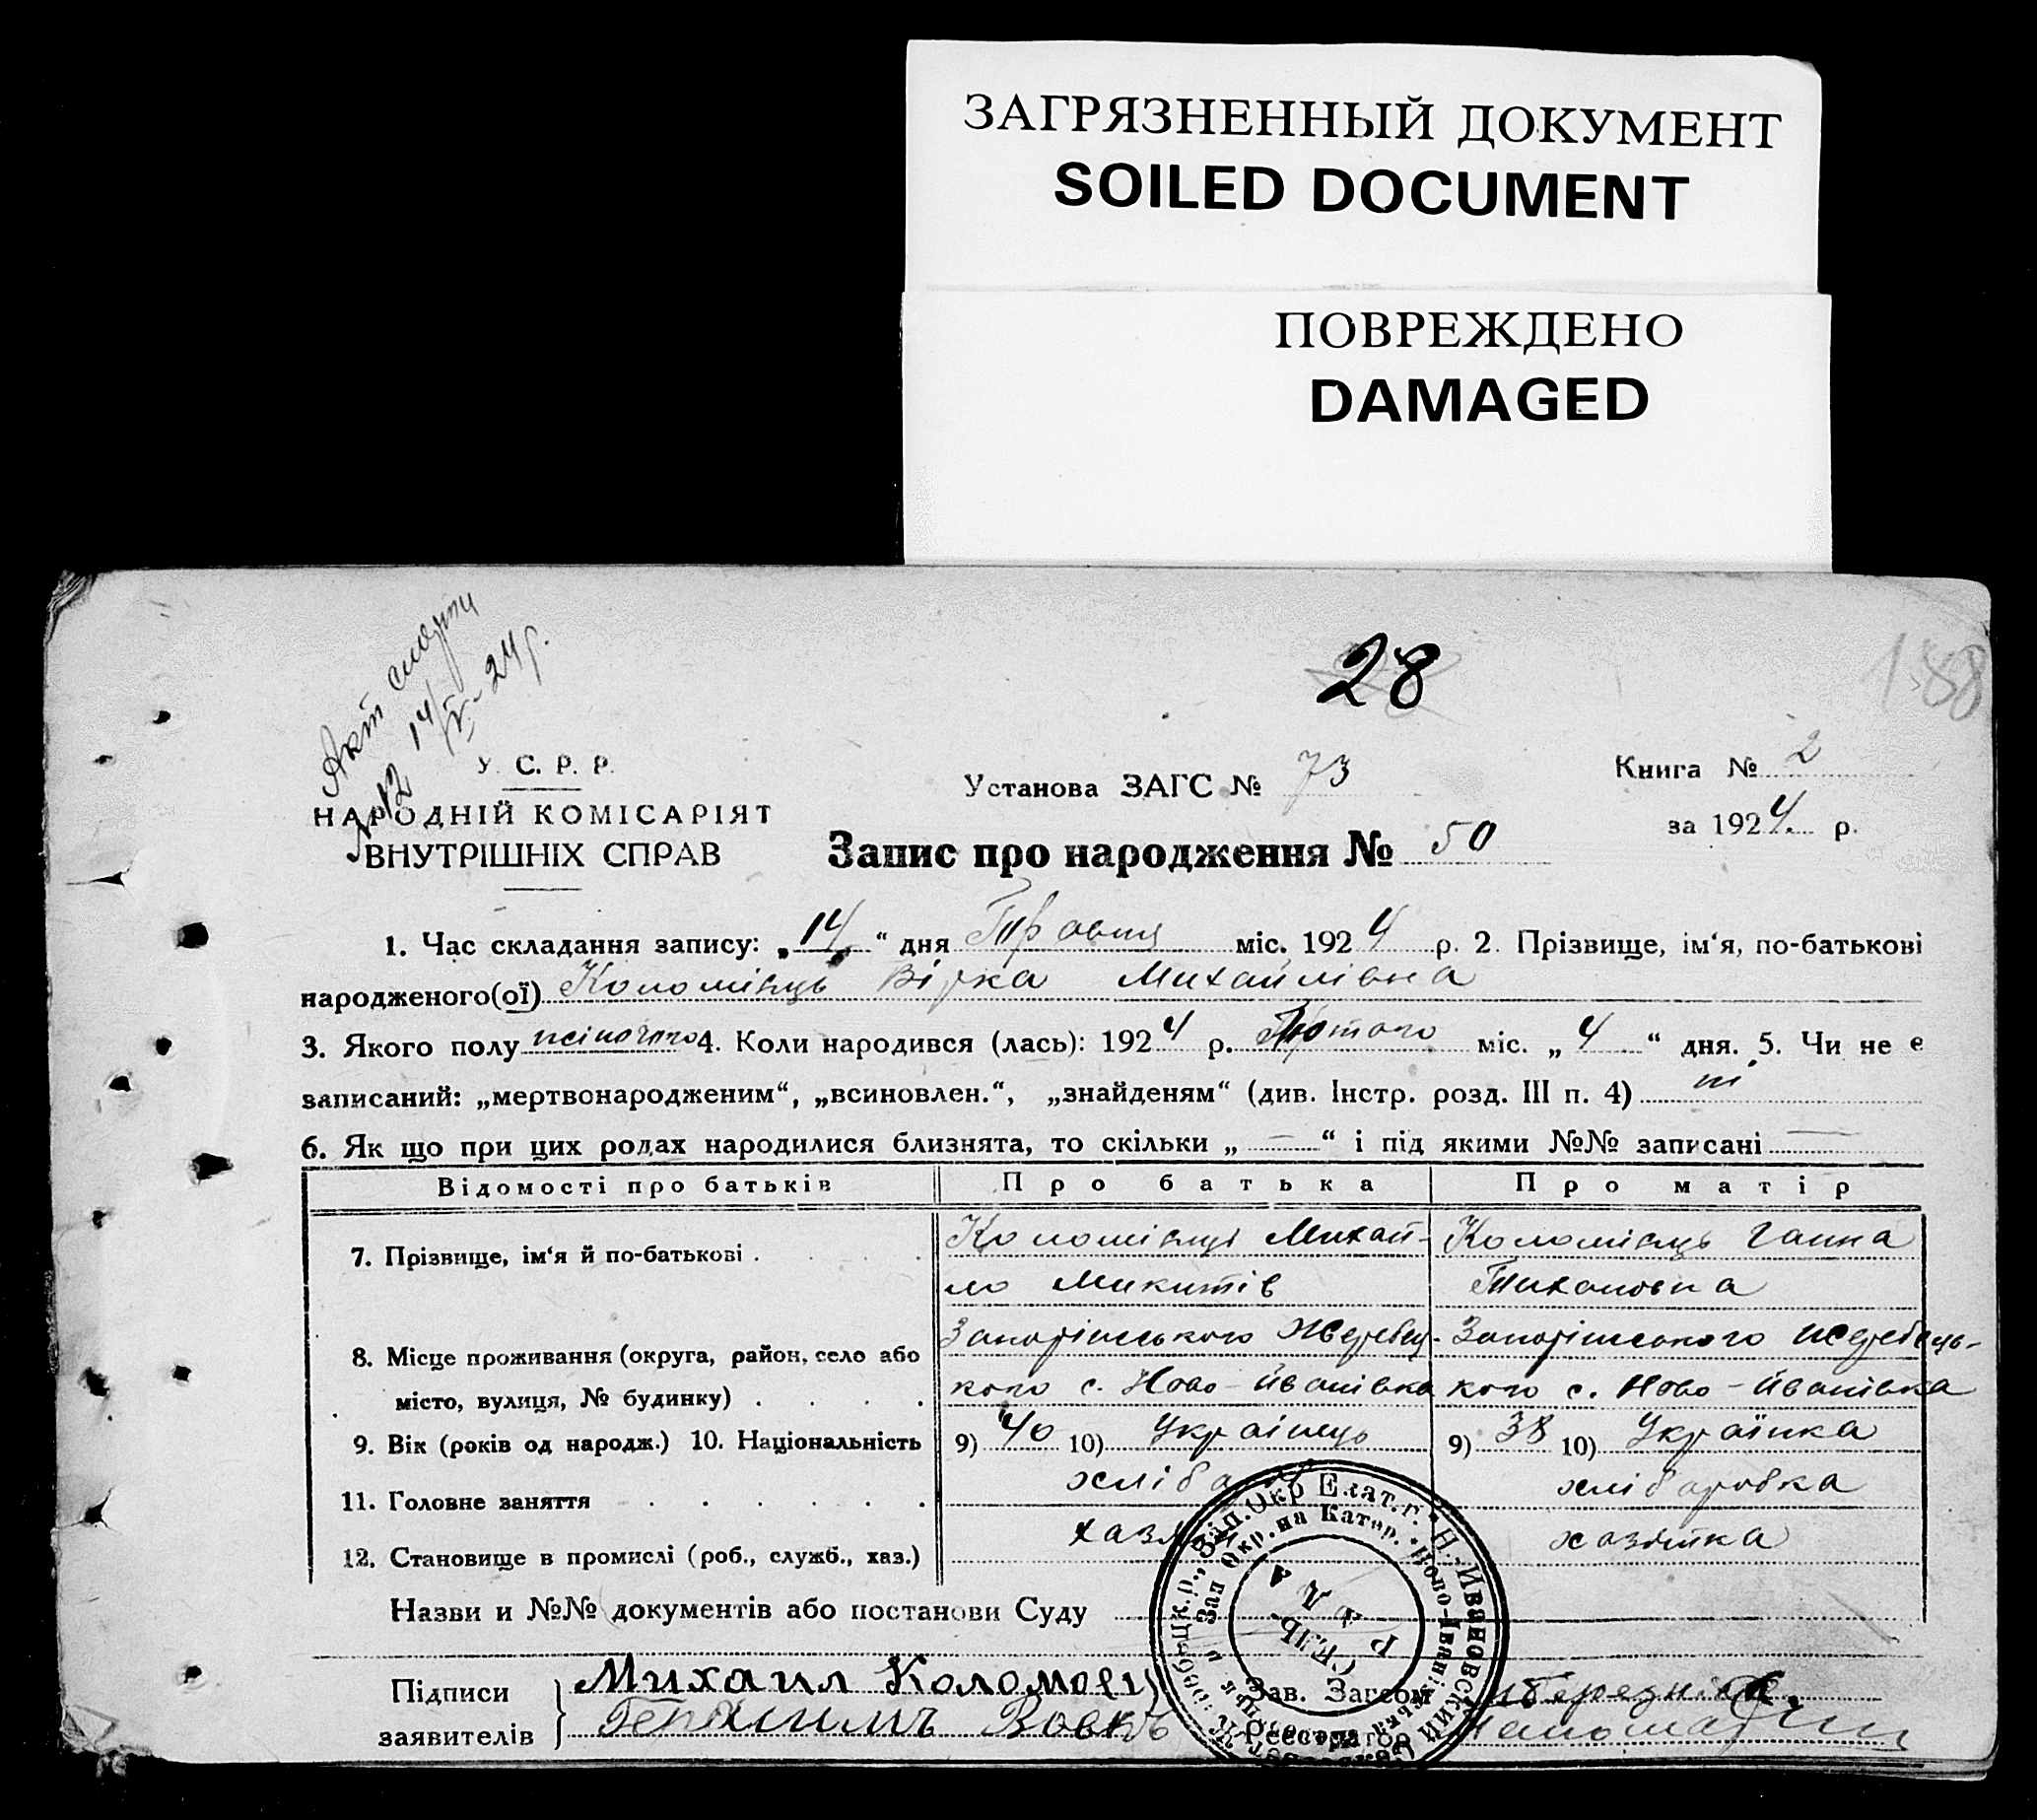 ЗАГРЯЗНЕННЫЙ ДОКУМЕНТ
SOILED DOCUMENT
ПОВРЕЖДЕНО
DAMAGED
28
188
Акт смерти
№ 12 14/V-24 р.
У. С. Р. Р.
НАРОДНІЙ КОМІСАРІЯТ
ВНУТРІШНІХ СПРАВ
Установа ЗАГС № 73
Книга № 2
за 1924 р.
Запис про народження № 50
1. Час складання запису: „14“ дня Травня міс. 1924 р. 2. Прізвище, ім‘я, по-батькові
народженого(ої) Коломієць Вірка Михайлівна
3. Якого полу жіночого 4. Коли народився (лась): 1924 р. Лютого міс. „4“ дня. 5. Чи не е
записаний: „мертвонародженим“, „всиновлен.“, „знайденям“ (див. Інстр. розд. III п. 4) ні
6. Як що при цих родах народилися близнята, то скільки „—“ і під якими №№ записані —
Відомості про батьків Про батька Про матір
7. Прізвище, ім‘я й по-батькові . Коломієць Михай- Коломієць Ганна
ло Микитів Тихоновна
8. Місце проживання (округа, район, село або Запоріжського Жеребец- Запоріжського Жеребець-
місто, вулиця, № будинку) . . . . кого с. Ново-Йванівка кого с. Ново-Йванівка
9. Вік (років од народж.) 10. Національність 9) 40 10) Украінець 9) 38 10) Українка
11. Головне заняття . . . . . . хлібороб хлібаробка
12. Становище в промислі (роб., служб., хаз.) хазяїн хазяйка
Назви и №№ документів або постанови Суду
Підписи Михаил Коломоец Зав. Загсом
заявителів Герасимъ Вовкъ Реєстратор
Н.-Ивановский
СЕЛЬ-
РАДА